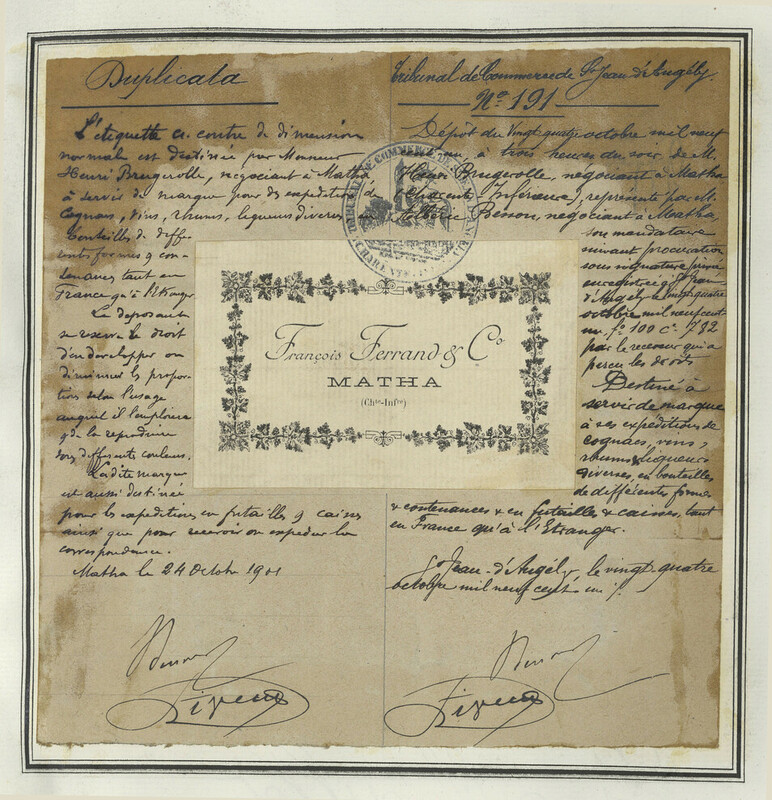 Duplicata
L'étiquette ci. contre de dimension
normale est destinée par Monsieur
Henri Brugerolle, négociant à Matha
à servir de marque pour des expéditions de
Cognacs, vins, rhums, liqueurs diverses en
bouteilles de diffé-
rentes formes & con-
tenances tant en
France qu'à l'Etranger
Le déposant
se réserve le droit
d'en développer ou
diminuer les propor-
tions selon l'usage
auquel il l'emploiera
& de la reproduire
sous différentes couleurs.
Ladite marque
est aussi destinée
pour les expéditions en futailles & caisses
ainsi que pour recevoir ou expédier la
correspondance.
Matha le 24 Octobre 1901
Tribunal de Commerce de St Jean d'Angély.
No 191
Dépôt du Vingt quatre octobre mil neuf
à trois heures du soir, de M.
Henri Brugerolle, négociant à Matha
(Charente Inférieure), représenté par M.
Besson, négociant à Matha,
son mandataire
suivant procuration
sous signature privée
enregistrée à St Jean
d'Angély le vingt quatre
octobre mil neuf cent
un, fo 100 Ce 782
par le receveur qui a
perçu les droits
Destiné à
servir de marque
à ses expéditions de
cognacs, vins,
rhums & liqueurs
diverses, en bouteilles
de différentes formes
& contenances & en futailles & caisses, tant
en France qu'à l'Etranger.
St Jean-d'Angély, le vingt-quatre
octobre mil neuf cent un /.
TRIBUNAL DE COMMERCE DE
CHARENTE
François Ferrand & Co
MATHA
(Chte-Infre)